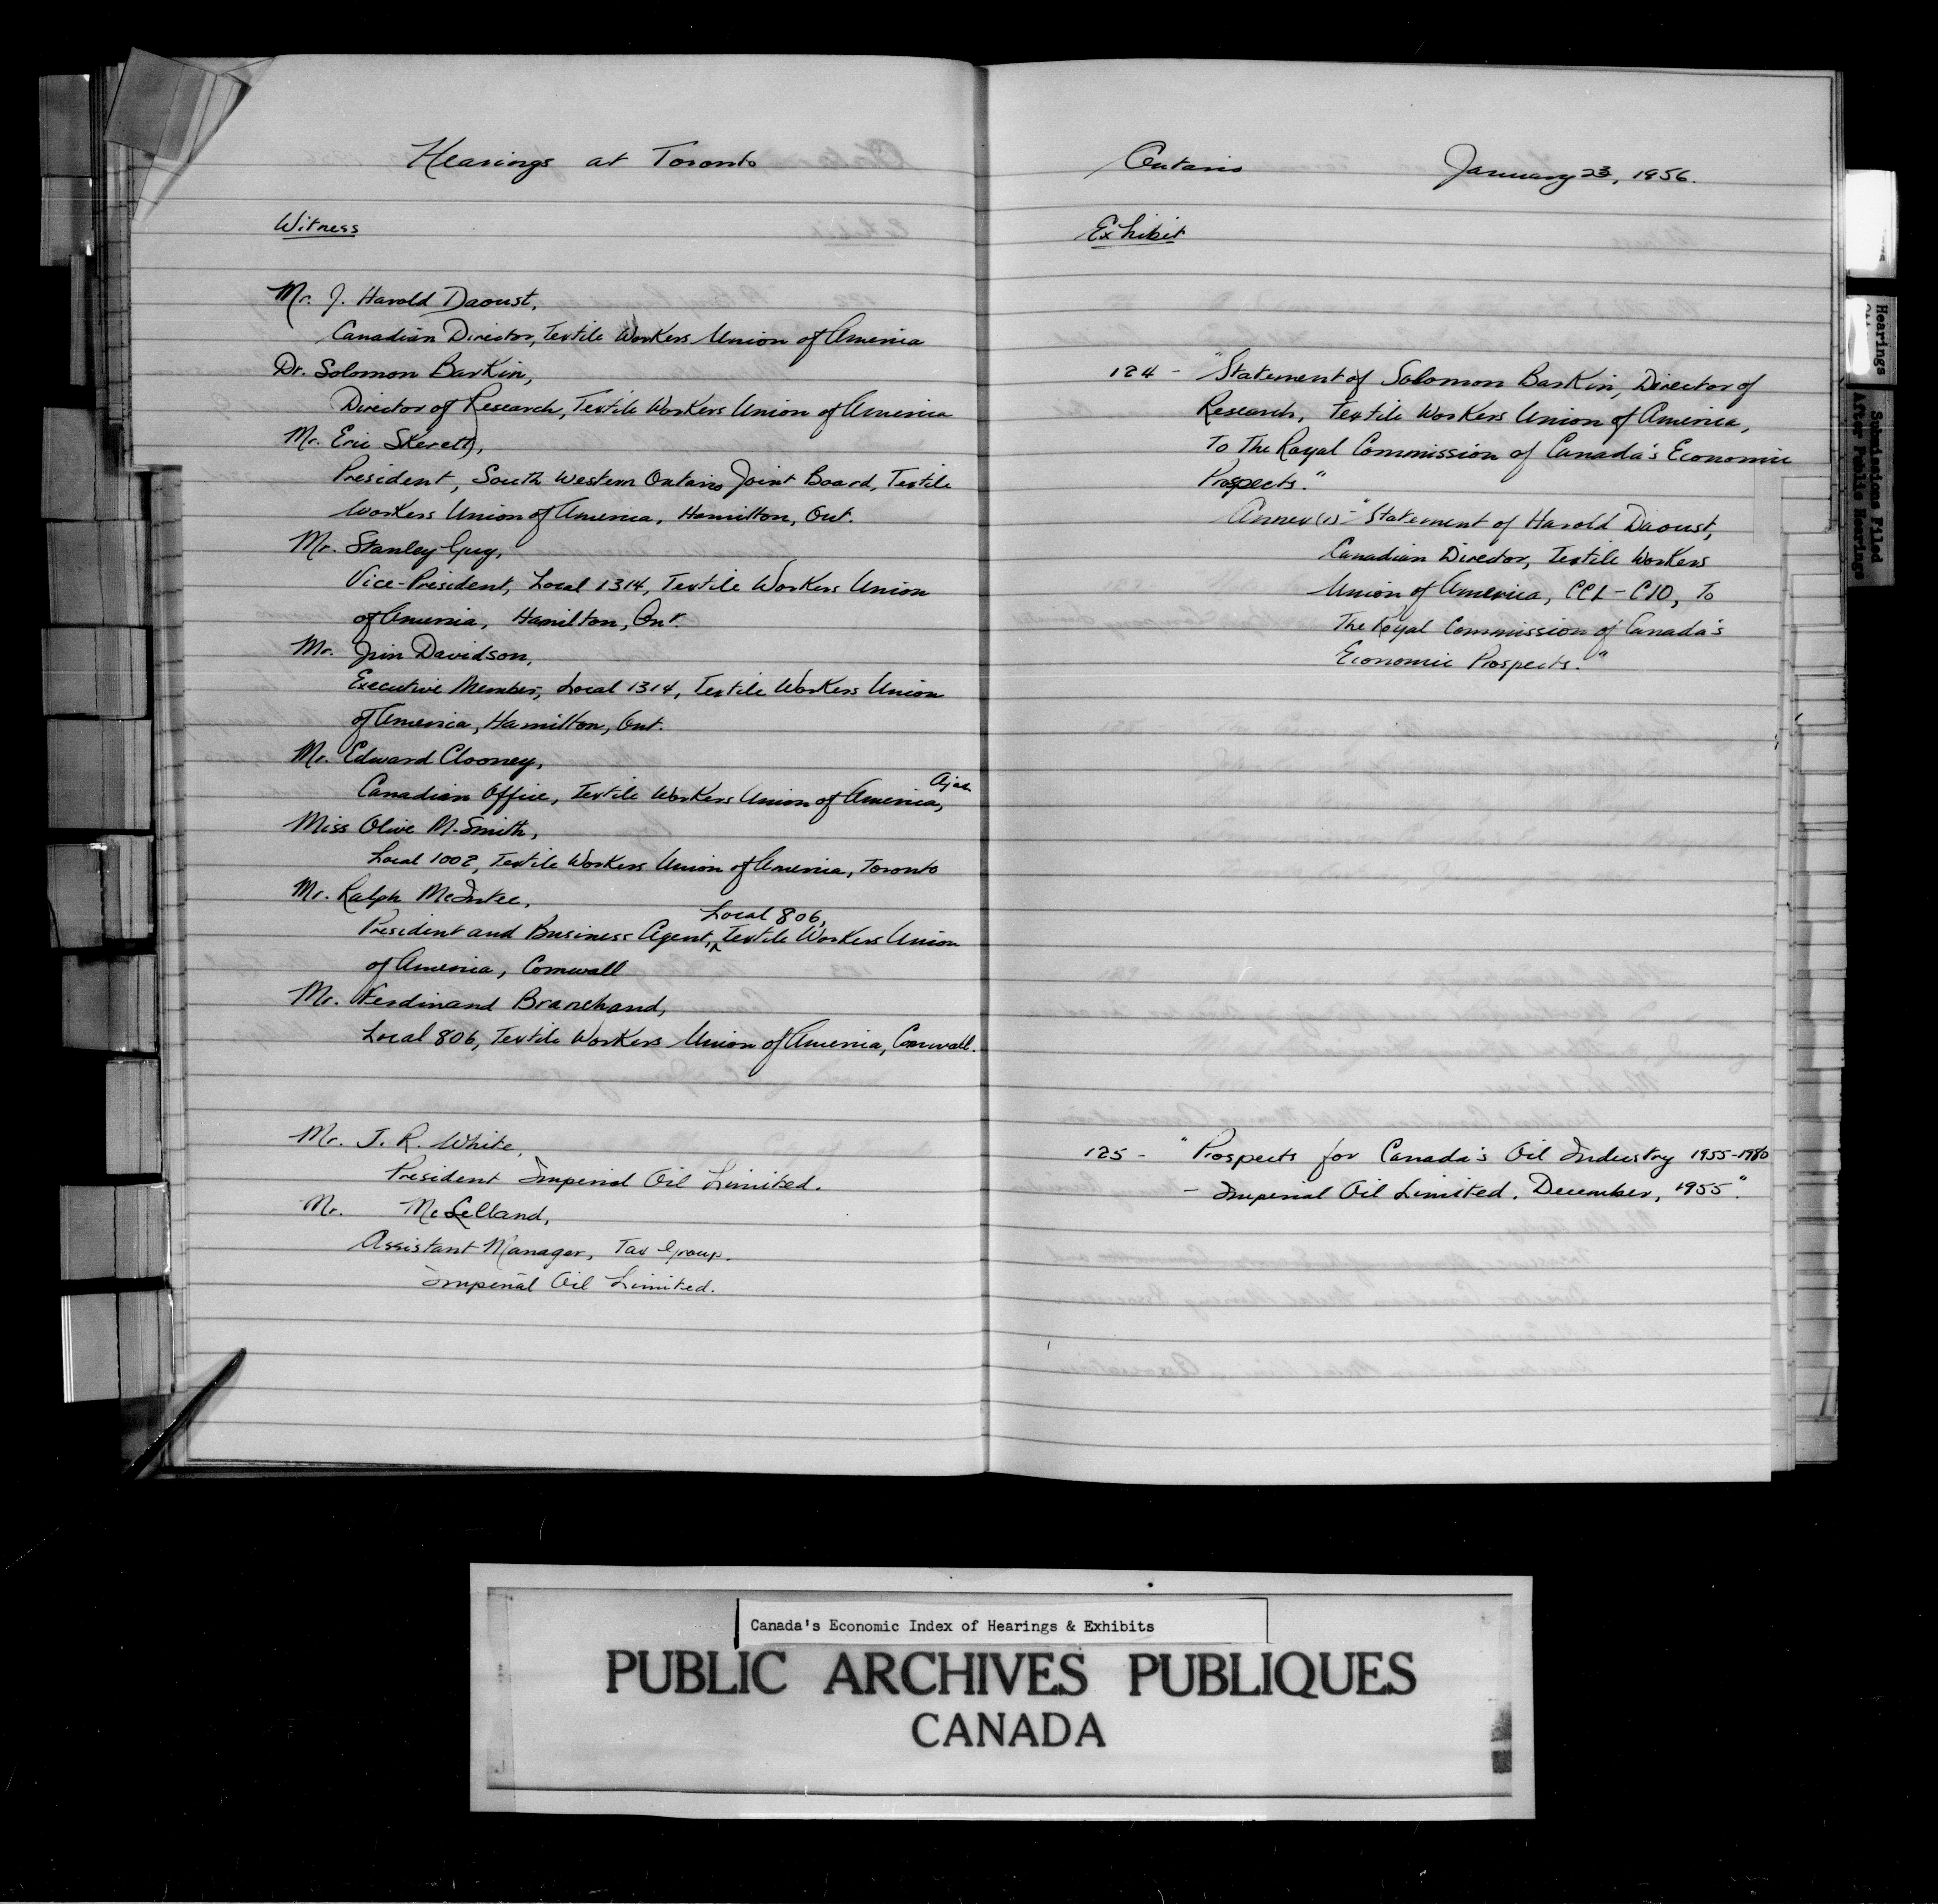 Hearings at Toronto
Witness
Mr. J. Harold Daoust,
Canadian Director, Textile Workers Union of America
Dr. Solomon Barkin,
Director of Research, Textile Workers Union of America
Mr. Eric Skerett,
President, South Western Ontario Joint Board, Textile
Workers Union of America, Hamilton, Ont.
Mr. Stanley Guy,
Vice-President, Local 1314, Textile Workers Union
of America, Hamilton, Ont.
Mr. Jim Davidson,
Executive Member, Local 1314, Textile Workers Union
of America, Hamilton, Ont.
Mr. Edward Clooney,
Canadian Office, Textile Workers Union of America, Ajax
Miss Olive M. Smith,
Local 1002, Textile Workers Union of America, Toronto
Mr. Ralph
President and Business Agent, Local 806, Textile Workers Union
of America, Cornwall
Mr. Ferdinand Branchaud,
Local 806, Textile Workers Union of America, Cornwall.
Mr. J. R. White,
President Imperial Oil Limited.
Mr. McLelland,
Assistant Manager, Tax Group.
Imperial Oil Limited.
Ontario January 23, 1956.
Exhibit
124 - "Statement of Solomon Barkin, Director of
Research, Textile Workers Union of America,
To The Royal Commission of Canada's Economic
Prospects."
Annex (1) - "Statement of Harold Daoust,
Canadian Director, Textile Workers
Union of America, CCL - CIO, To
The Royal Commission of Canada's
Economic Prospects."
125 - "Prospects for Canada's Oil Industry 1955-1980
- Imperial Oil Limited. December, 1955".
Hearings
Submissions Filed
After Public Hearings
Canada's Economic Index of Hearings & Exhibits
PUBLIC ARCHIVES PUBLIQUES
CANADA